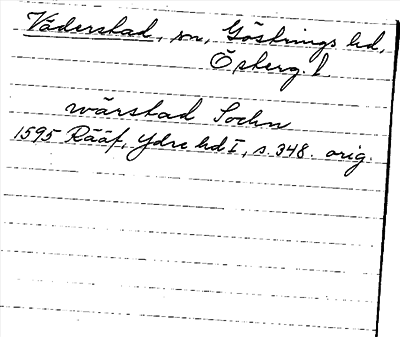 Väderstad, sn, Göstrings hd,
Österg. l.
wärstad Sochn
1595 Rääf, Ydre hd I, s. 348. orig.